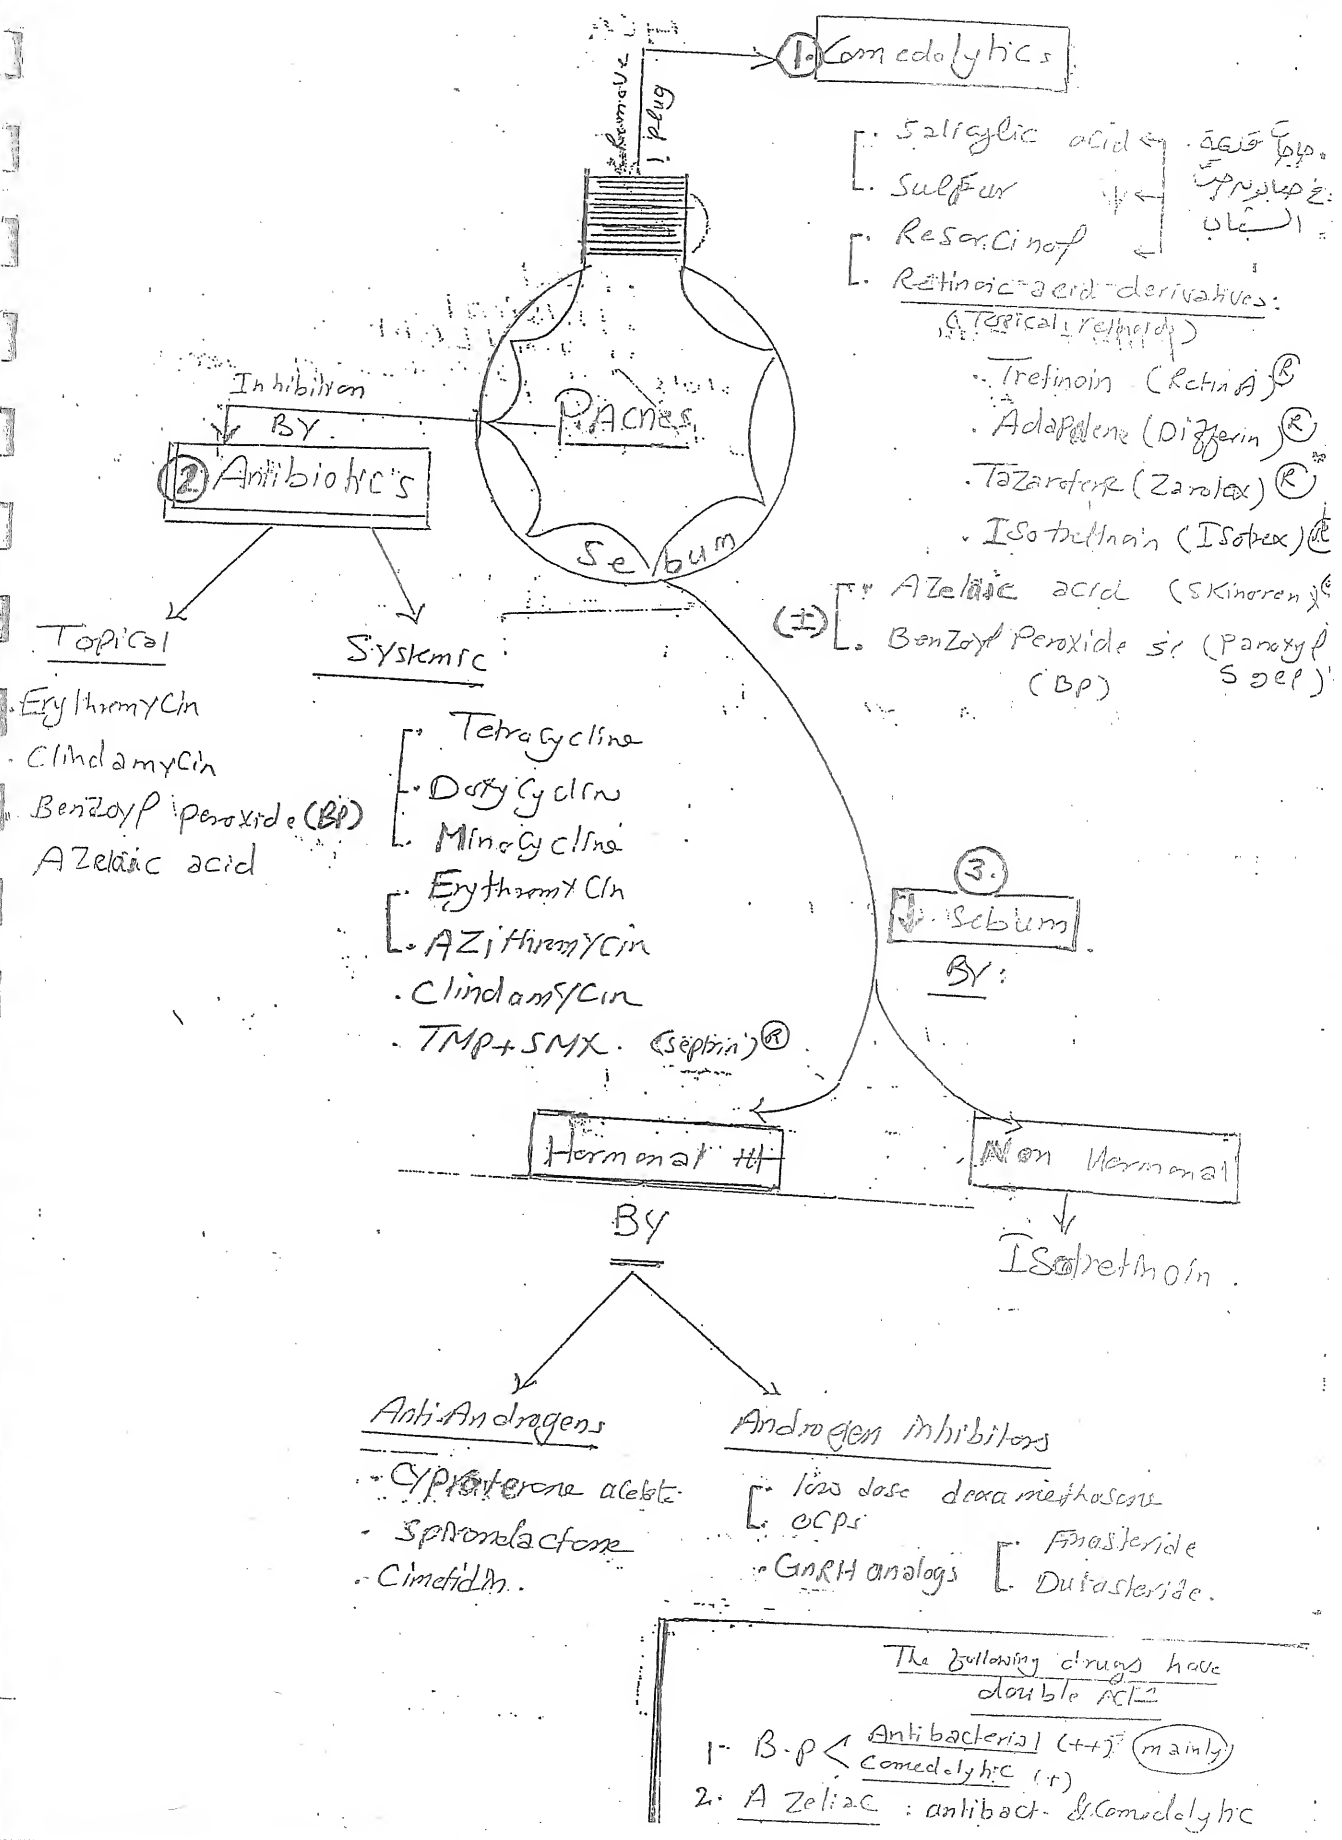 1. Comedolytics
plug
. Salicylic acid
. Sulfur
. Resorcinol
. Retinoic acid derivatives:
(Topical retinoids)
. Tretinoin (Retin A) ®
. Adapalene (Differin) ®
. Tazarotene (Zarotex) ®
. Isotretinoin (Isotrex) ®
(±)
. Azelaic acid (Skinoren)
. Benzoyl Peroxide 5% (Panoxyl
(BP) 5 gel)
الشباب
P. Acnes
Sebum
Inhibition
BY
2 Antibiotic's
Topical
. Erythromycin
. Clindamycin
. Benzoyl peroxide (BP)
Azelaic acid
Systemic
. Tetracycline
. Doxycyclin
. Minocycline
. Erythromycin
. AZithromycin
. Clindamycin
. TMP + SMX. (septrin) ®
3.
↓ Sebum
BY:
Hormonal ttt
Non Hormonal
Isotretinoin.
BY
Anti-Androgens
- Cyproterone acetate
- Spironolactone
- Cimetidin.
Androgen inhibitors
. low dose dexamethasone
. OCPs
. GnRH analogs
. Finasteride
. Dutasteride.
The following drugs have
double
1- B.P < Antibacterial (++) mainly
Comedolytic (+)
2. AZeliac : antibact. & Comedolytic